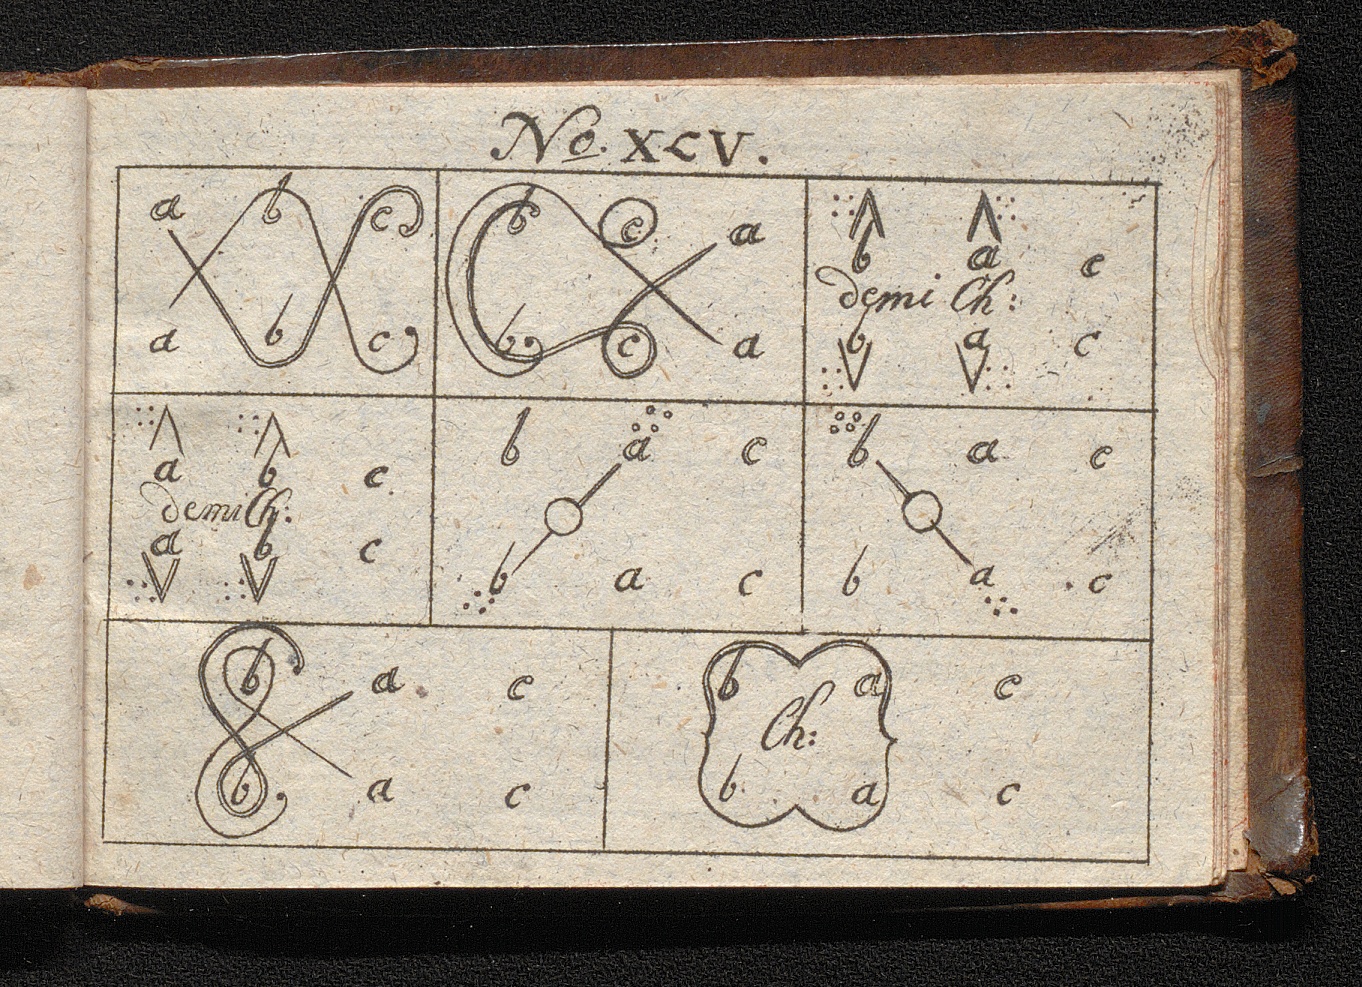 No. XCV.
a b c
a b c
b c a
b c a
b a c
demi Ch:
b a c
a b c
demi Ch:
a b c
b a c
b a c
b a c
b a c
b a c
b a c
b a c
Ch:
b a c